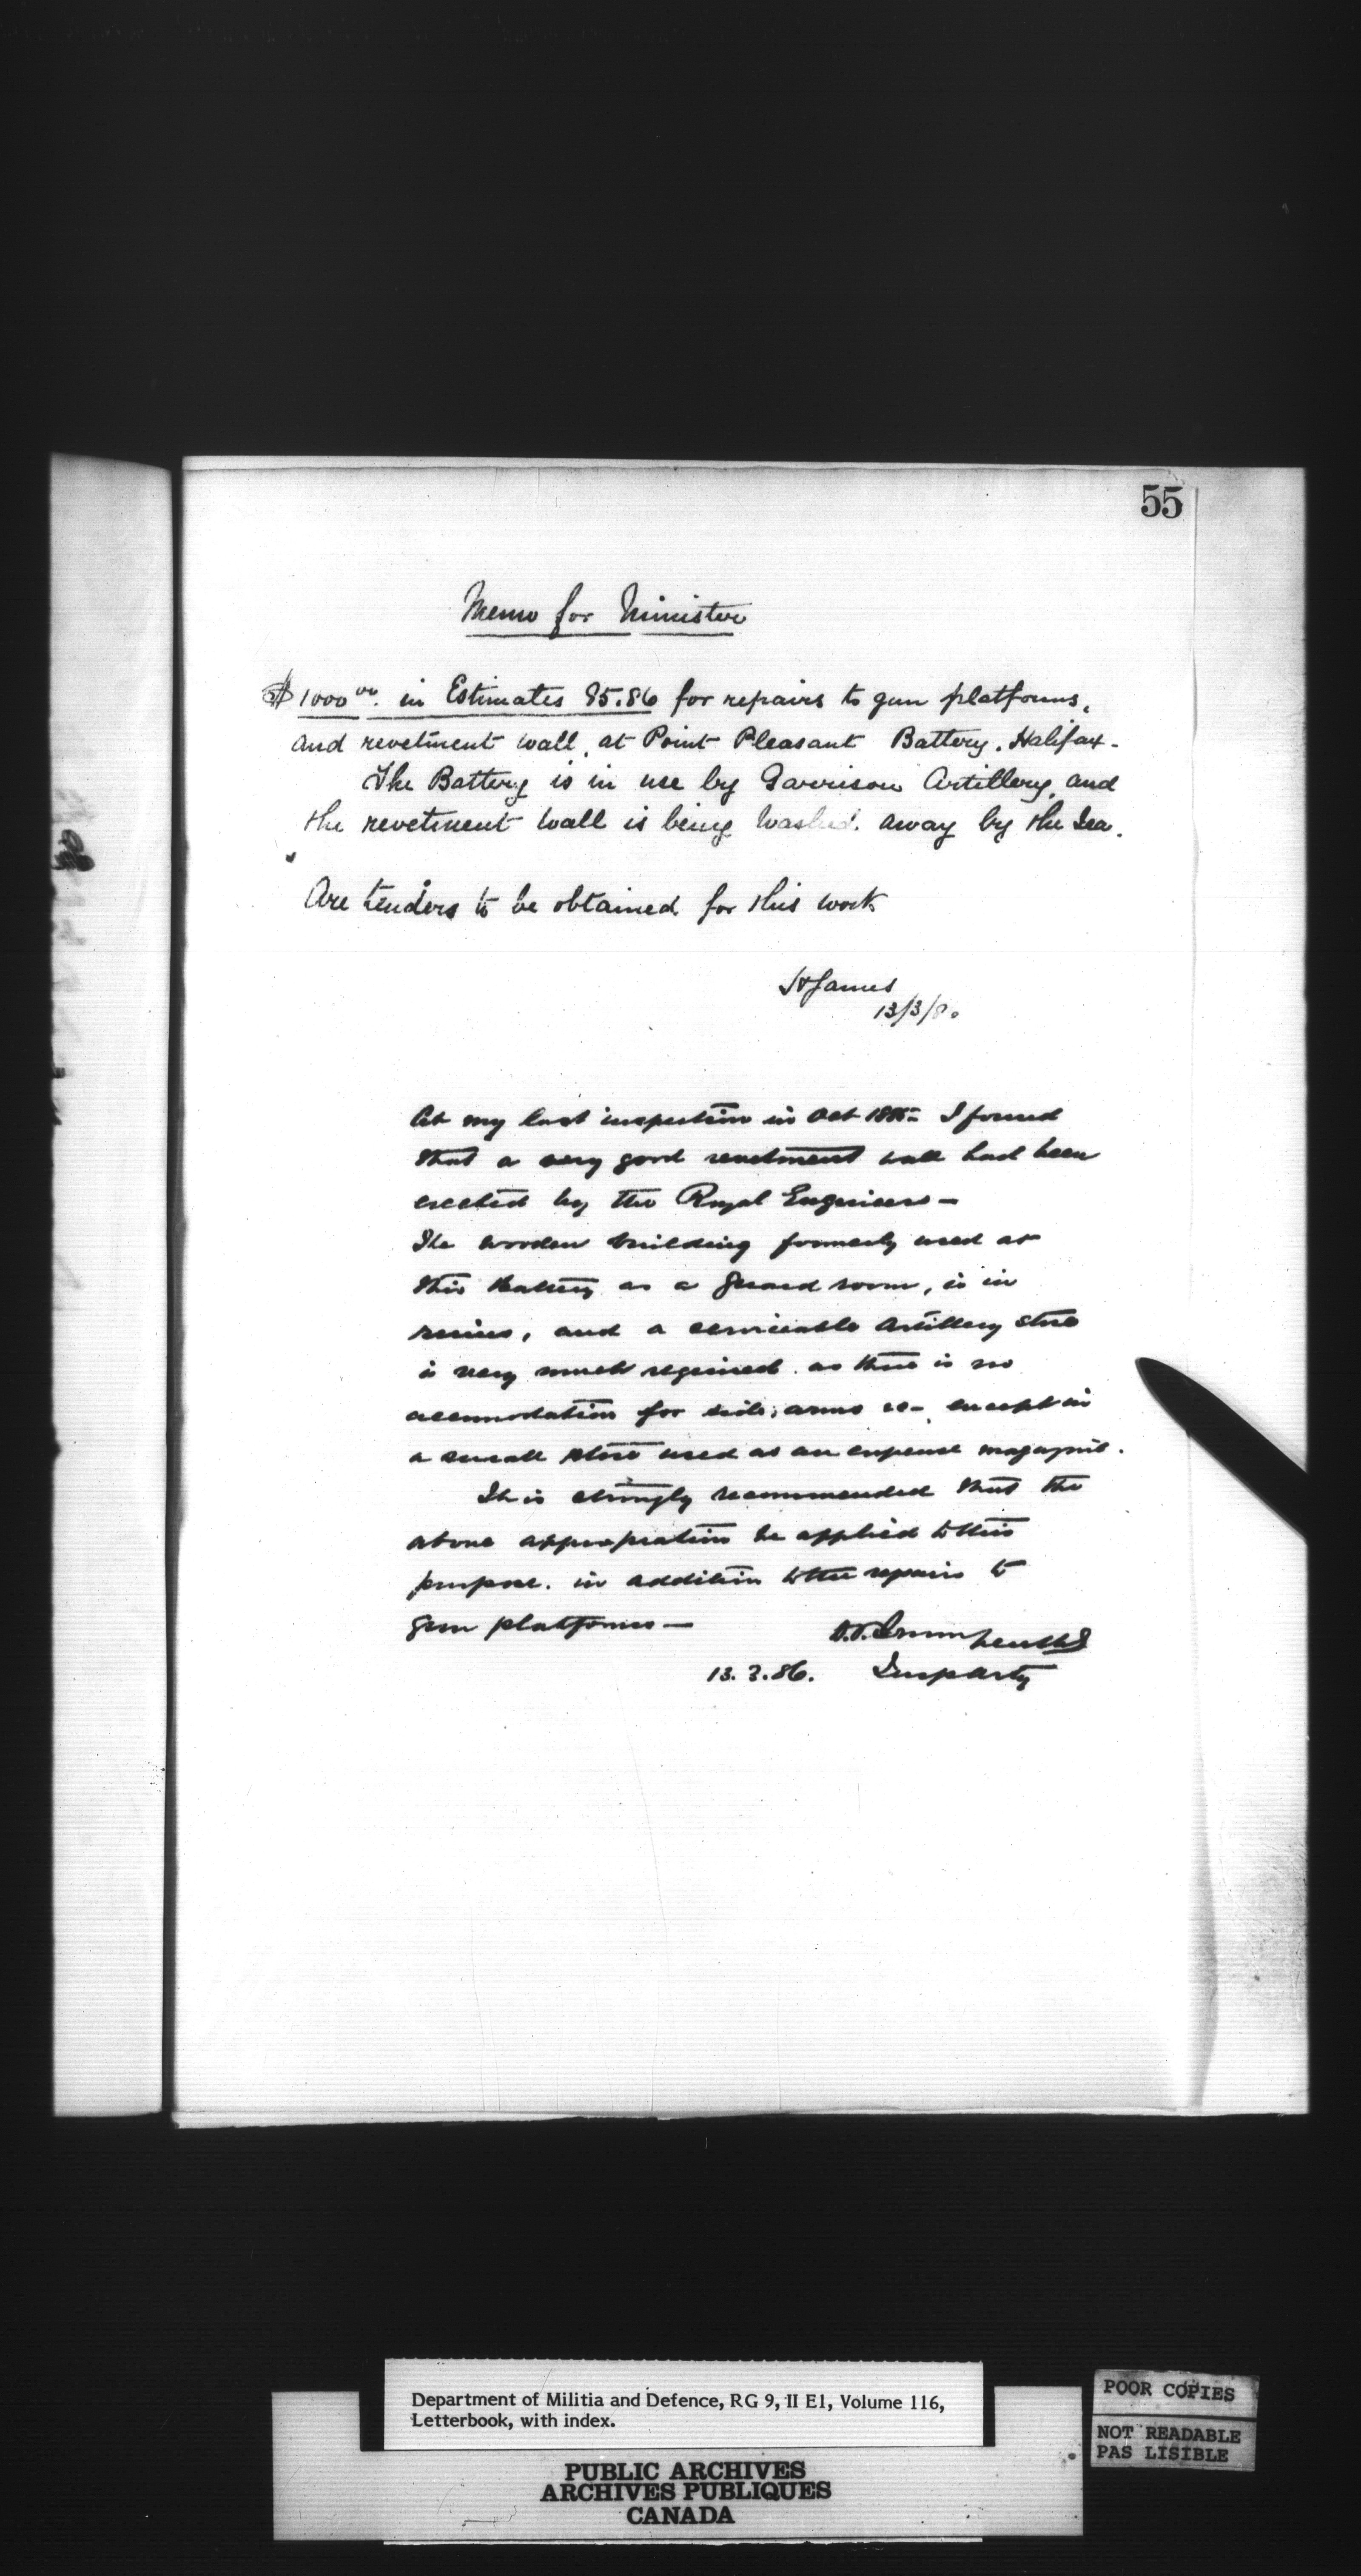 55
Memo for Minister
$1000 00. in Estimates 85.86 for repairs to gun platforms,
and revetment wall, at Point Pleasant Battery. Halifax.
The Battery is in use by Garrison Artillery, and
the revetment wall is being washed away by the Sea.
Are tenders to be obtained for this work
HJames
13/3/8
At my last inspection in Oct I found
that a very good revetment wall had been
erected by the Royal Engineers —
The wooden building formerly used at
this Battery as a guard room, is in
ruins, and a serviceable artillery store
is very much required. as there is no
accomodation for side arms &c - except in
a small store used as an expense magazine.
It is strongly recommended that the
above appropriation be applied to this
purpose. in addition to the repairs to
gun platforms —
13.3.86. Insp Arty
Department of Militia and Defence, RG 9, II E1, Volume 116,
Letterbook, with index.
PUBLIC ARCHIVES
ARCHIVES PUBLIQUES
CANADA
POOR COPIES
NOT READABLE
PAS LISIBLE